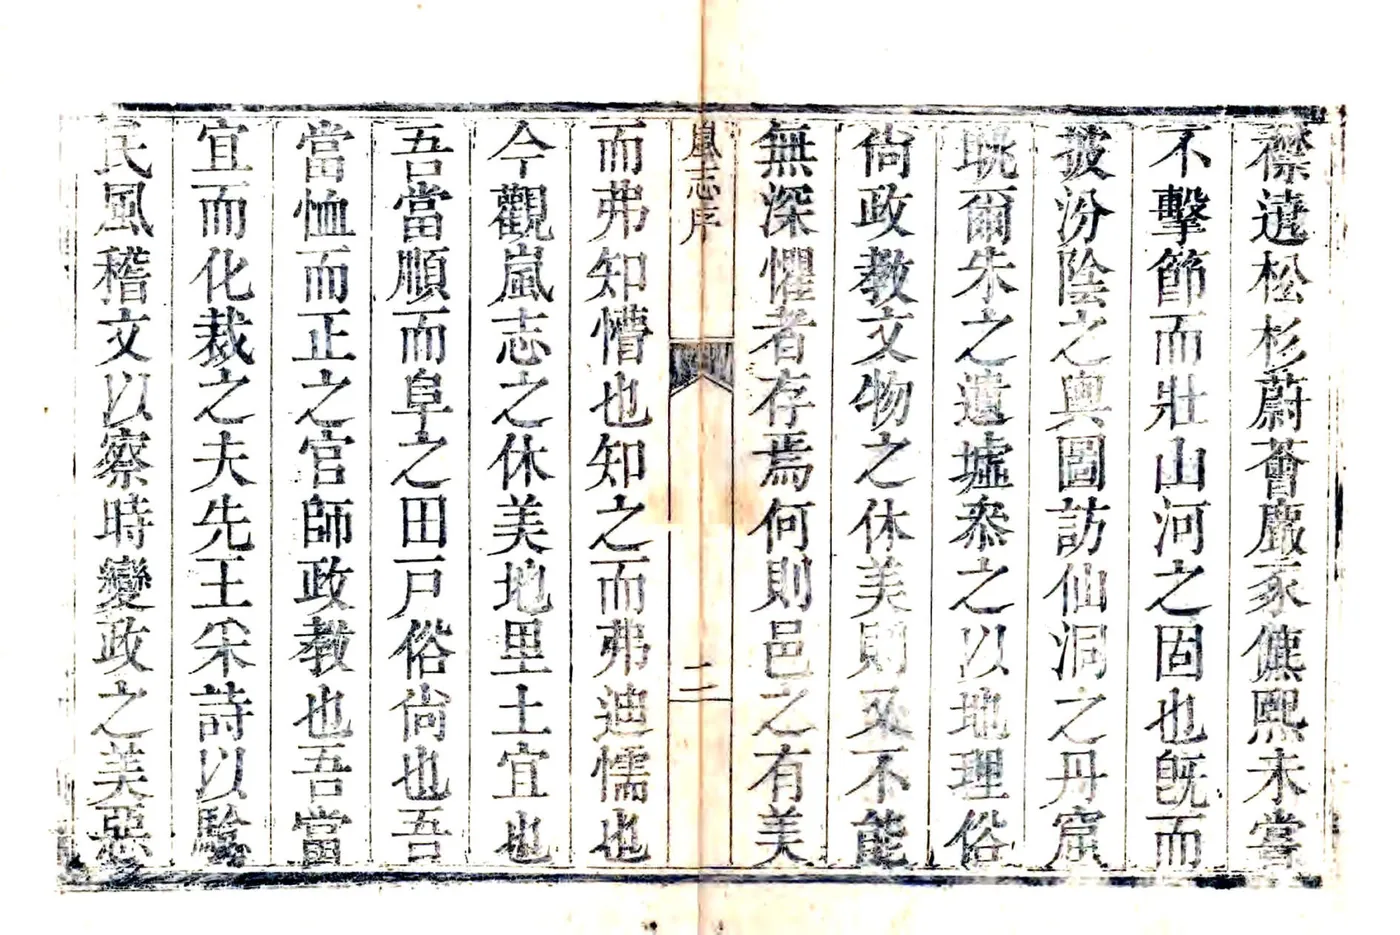 襟遶松杉蔚薈嚴豕僬熙未嘗
不擊節而壯山河之固也旣而
披汾陰之輿圖訪仙洞之丹窟
眺爾朱之遺墟叅之以地理俗
尙政教文物之休美則又不能
無深懼者存焉何則邑之有美
嵐志序
二
而弗知懵也知之而弗迪懦也
今觀嵐志之休美地里土宜也
吾當順而阜之田戸俗尙也吾
當恤而正之官師政教也吾當
宜而化裁之夫先王采詩以騐
民風稽文以察時變政之美惡